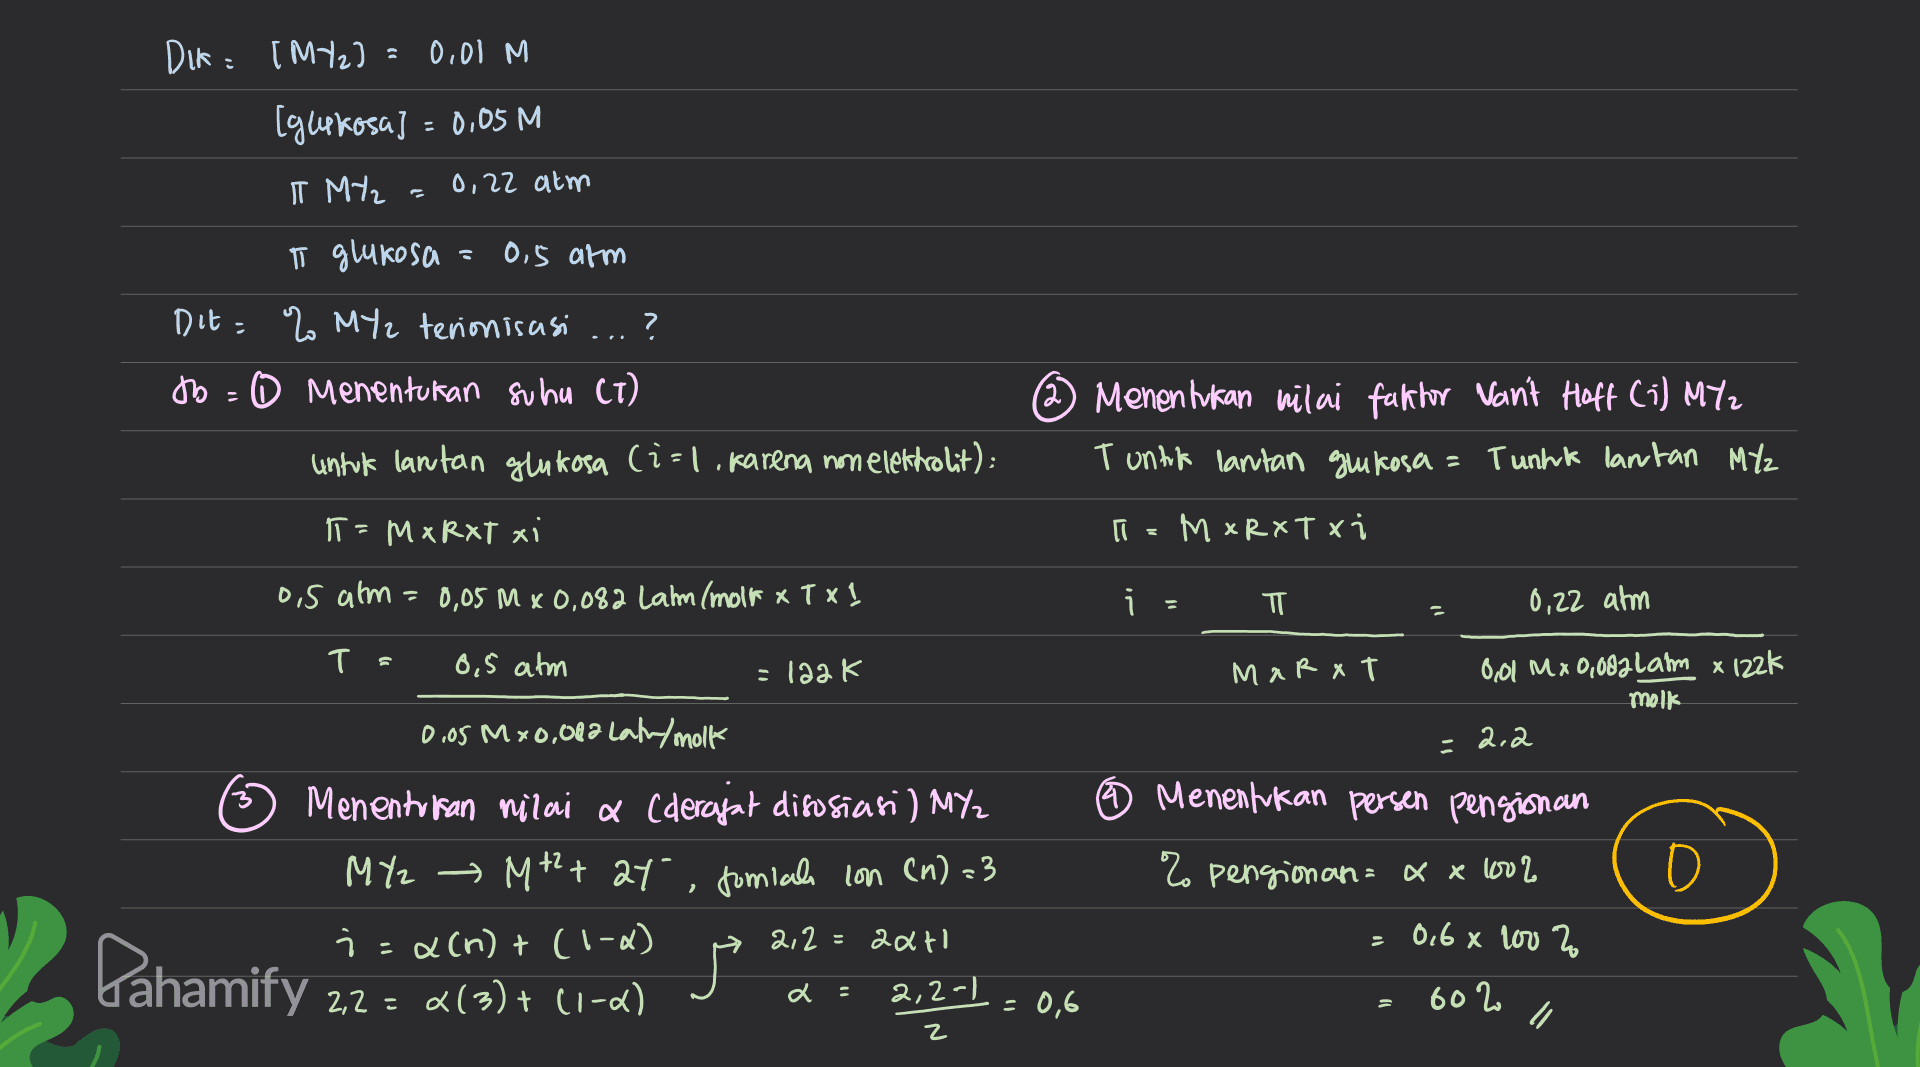 Dik = [MY₂] = 0,01 M
[glukosa] = 0,05 M
π MY₂ = 0,22 atm
π glukosa = 0,5 atm
Dit = % MY₂ terionisasi ... ?
Jb = ① Menentukan suhu (T)
untuk larutan glukosa (i = 1, karena nonelektrolit) :
π = M x R x T x i
0,5 atm = 0,05 M x 0,082 L atm/mol K x T x 1
T = 0,5 atm / 0,05 M x 0,082 L atm/mol K = 122 K
② Menentukan nilai faktor Van't Hoff (i) MY₂
T untuk larutan glukosa = T untuk larutan MY₂
π = M x R x T x i
i = π / M x R x T = 0,22 atm / 0,01 M x 0,082 L atm/mol K x 122 K
= 2,2
③ Menentukan nilai α (derajat disosiasi) MY₂
MY₂ → M⁺² + 2Y⁻, Jumlah ion (n) = 3
i = α(n) + (1-α)
2,2 = α(3) + (1-α)
2,2 = 2α+1
α = 2,2-1 / 2 = 0,6
④ Menentukan persen pengionan
% pengionan = α x 100%
= 0,6 x 100 %
= 60 % //
D
Pahamify